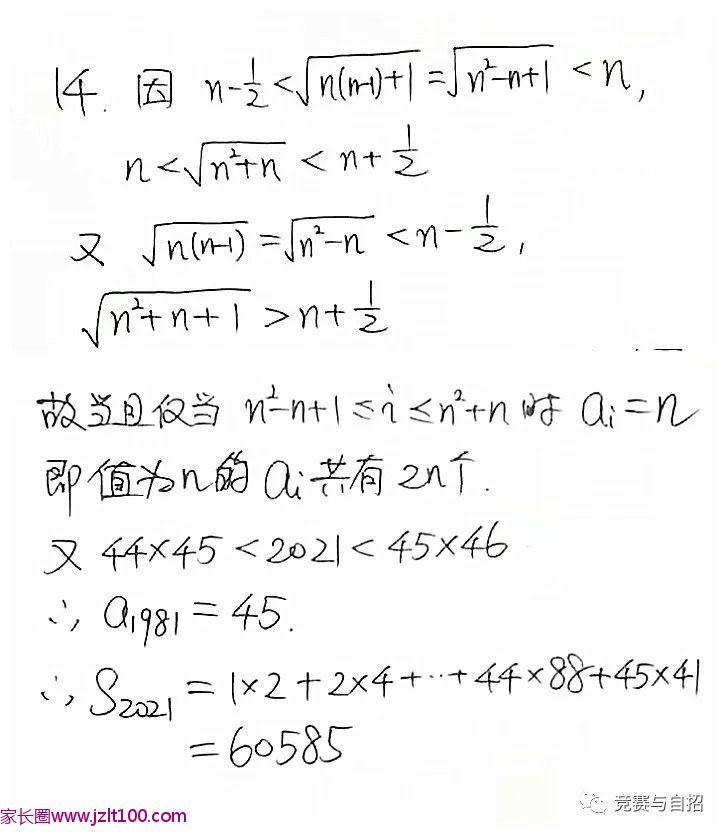 14. 因 n-1/2<√(n(n-1)+1)=√(n²-n+1) <n,
n<√(n²+n) < n+1/2
又 √(n(n-1))=√(n²-n) <n-1/2,
√(n²+n+1) >n+1/2
故当且仅当 n²-n+1≤i≤n²+n 时 aᵢ=n
即值为n的 aᵢ 共有 2n个.
又 44×45 <2021< 45×46
∴ a₁₉₈₁ = 45.
∴ S₂₀₂₁ = 1×2+2×4+…+44×88+45×41
=60585
竞赛与自招
家长圈www.jzlt100.com